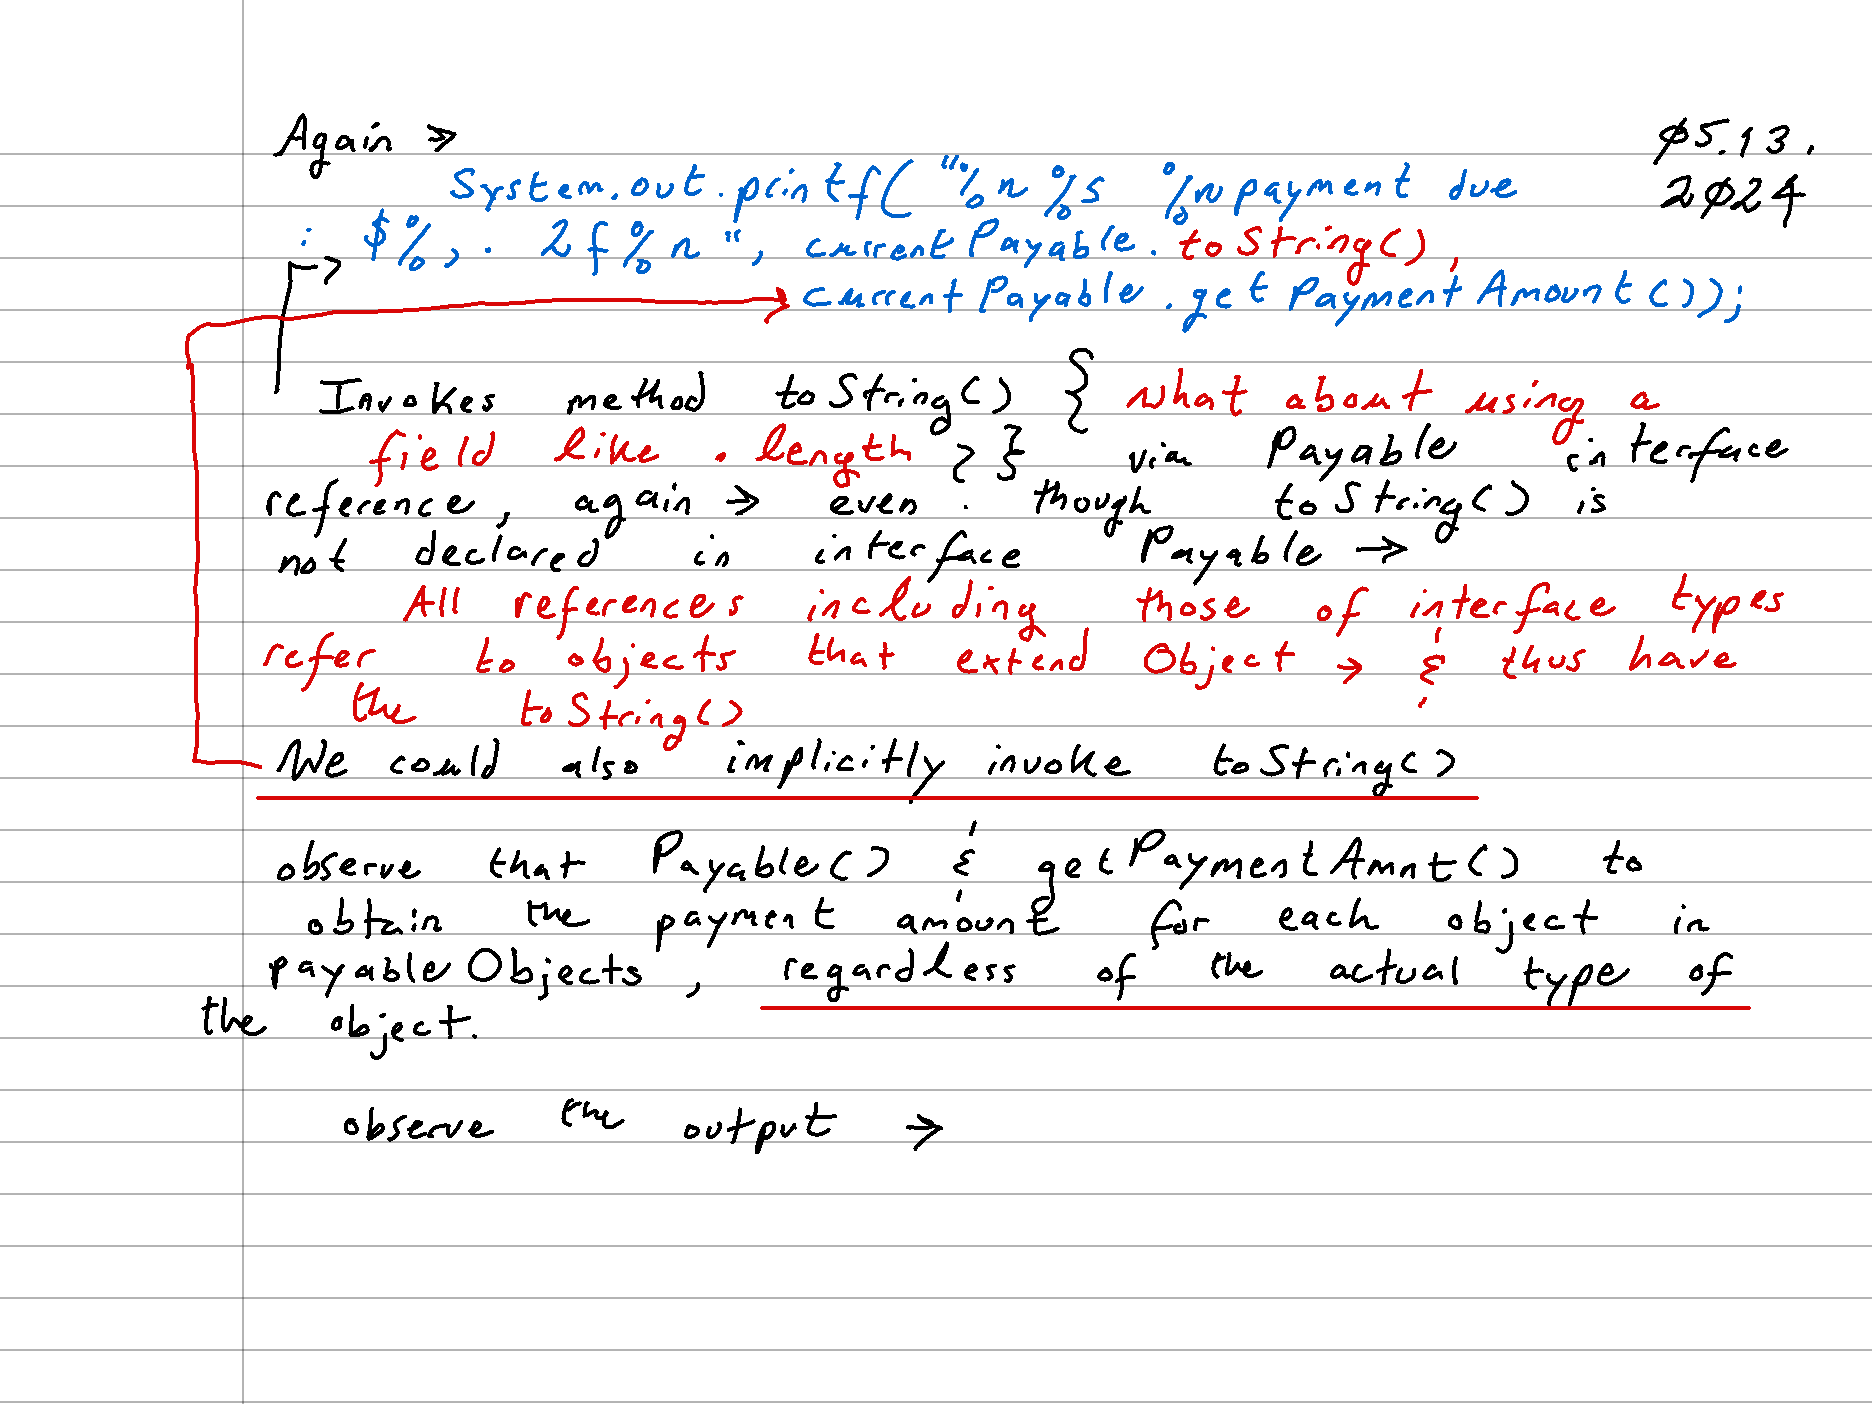 Again →
ø5.13.
2ø24
System.out.printf("%n %s %npayment due
: $%,. 2f%n", currentPayable.toString(),
currentPayable.getPaymentAmount());
Invokes method toString() { what about using a
field like .length ? } via Payable interface
reference, again → even though toString() is
not declared in interface Payable →
All references including those of interface types
refer to objects that extend Object → & thus have
the toString()
We could also implicitly invoke toString()
observe that Payable() & getPaymentAmnt() to
obtain the payment amount for each object in
payableObjects, regardless of the actual type of
the object.
observe the output →